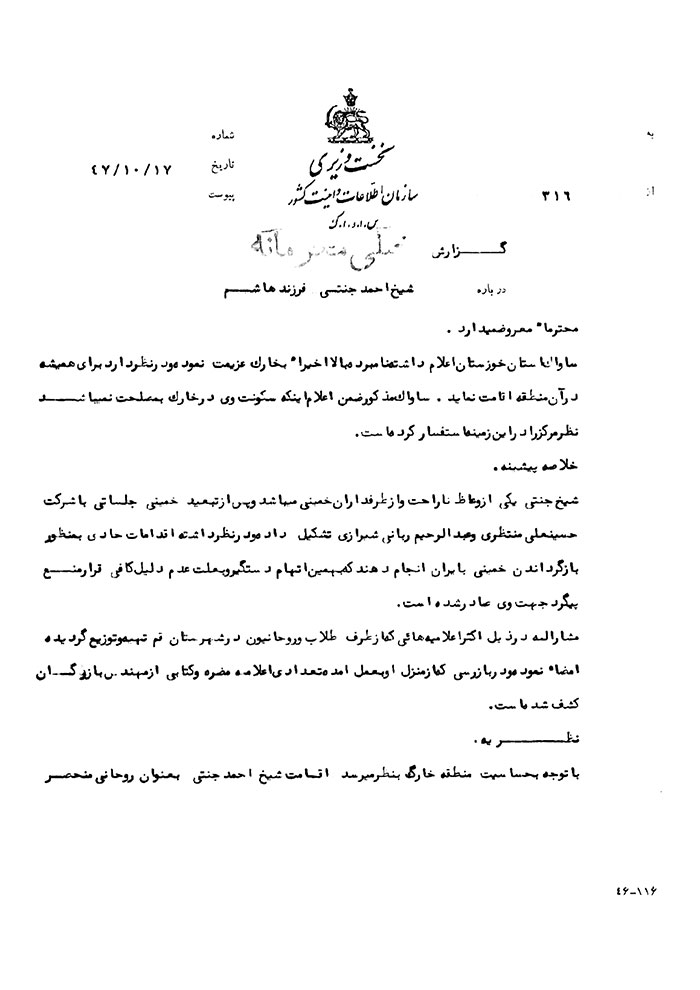 به
شماره
نخست وزیری
تاریخ ۴۷/۱۰/۱۷
از ۳۱۶
سازمان اطلاعات و امنیت کشور
پیوست
س.ا.و.ا.ک
گـــزارش خیلی محرمانه
درباره شیخ احمد جنتی فرزند هاشـــم
محترماً معروضمیدارد .
ساواک استان خوزستان اعلام داشته نامبرده بالا اخیراً بخارک عزیمت نموده و در نظر دارد برای همیشه
در آن منطقه اقامت نماید . ساواک مذکور ضمن اعلام اینکه سکونت وی در خارک بمصلحت نمیباشـــد
نظر مرکز را در این زمینه استفسار کرده است.
خلاصه پیشینه .
شیخ جنتی یکی از وعاظ ناراحت و از طرفداران خمینی میباشد و پس از تبعید خمینی جلساتی با شرکت
حسینعلی منتظری و عبدالرحیم ربانی شیرازی تشکیل داده و در نظر داشته اقدامات حادی بمنظور
بازگرداندن خمینی بایران انجام دهند که بهمین اتهام دستگیر و بعلت عدم دلیل کافی قرار منـــع
پیگرد جهت وی صادر شده است.
مشارالیه در ذیل اکثر اعلامیه هائی که از طرف طلاب و روحانیون در شهرستان قم تهیه و توزیع گردیده
امضاء نموده و در بازرسی که از منزل او بعمل آمده تعدادی اعلامیه مضره و کتابی از مهندس بازرگـــان
کشف شده است.
نظـــــریه.
با توجه بحساسیت منطقه خارک بنظر میرسد اقامت شیخ احمد جنتی بعنوان روحانی منحصر
۴۶-۱۱۶